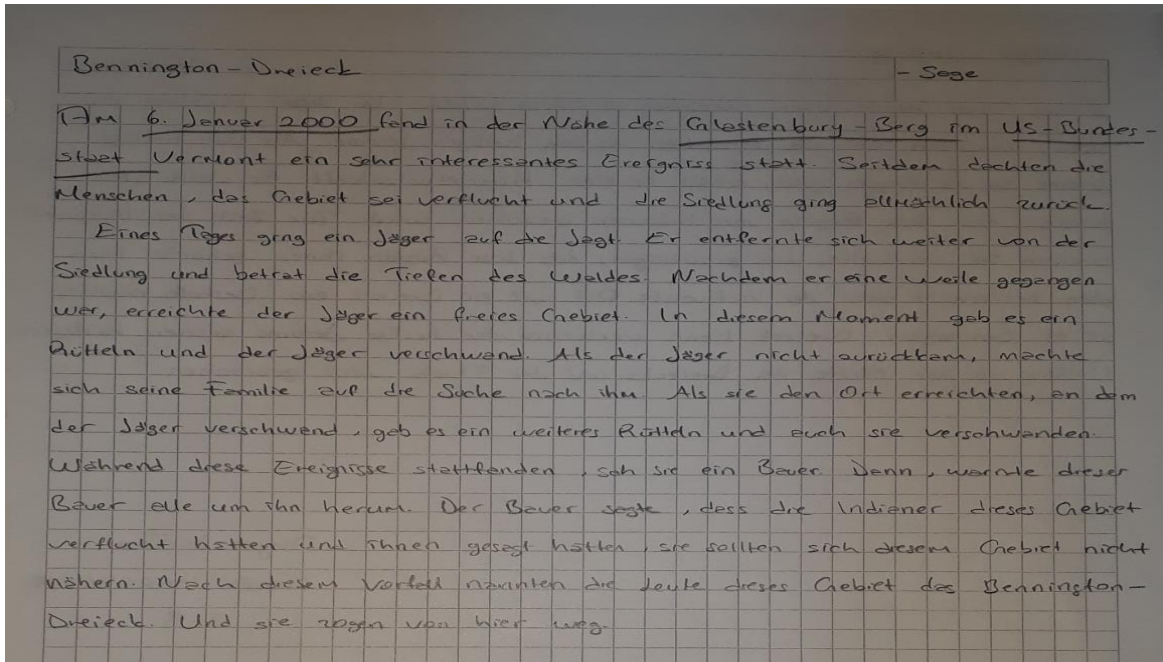 Bennington - Dreieck - Sage
Am 6. Januar 2000 fand in der Nähe des Glastenbury - Berg im US - Bundes -
staat Vermont ein sehr interessantes Ereigniss statt. Seitdem dachten die
Menschen, das Gebiet sei verflucht und die Siedlung ging allmächlich zurück.
Eines Tages ging ein Jäger auf die Jagt. Er entfernte sich weiter von der
Siedlung und betrat die Tiefen des Waldes. Nachdem er eine Weile gegangen
war, erreichte der Jäger ein freies Gebiet. In diesem Moment gab es ein
Rütteln und der Jäger verschwand. Als der Jäger nicht zurückkam, machte
sich seine Familie auf die Suche nach ihm. Als sie den Ort erreichten, an dem
der Jäger verschwand, gab es ein weiteres Rütteln und auch sie verschwanden.
Während diese Ereignisse stattfanden, sah sie ein Bauer. Dann, warnte dieser
Bauer alle um ihn herum. Der Bauer sagte, dass die Indianer dieses Gebiet
verflucht hatten und ihnen gesagt hatten, sie sollten sich diesem Gebiet nicht
nähern. Nach diesem Vorfall nannten die Leute dieses Gebiet das Bennington -
Dreieck. Und sie zogen von hier weg.